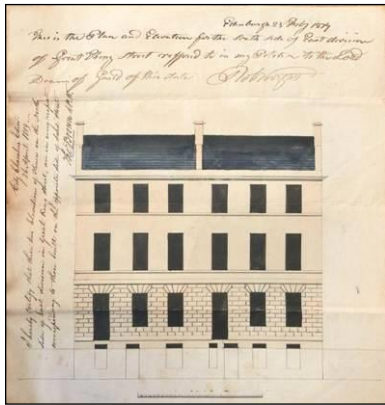 Edinburgh 23 Feby 1819
This is the Plan and Elevation for the South side of East division
of Great King Street reffered to in my Petition to the Lord
Dean of Guild of this date
City Chambers Edinr
I hereby certify that these two Elevations of Houses on the South
side of East division in Great King Street, are in every respect
corresponding to those built on the opposite side of said Street